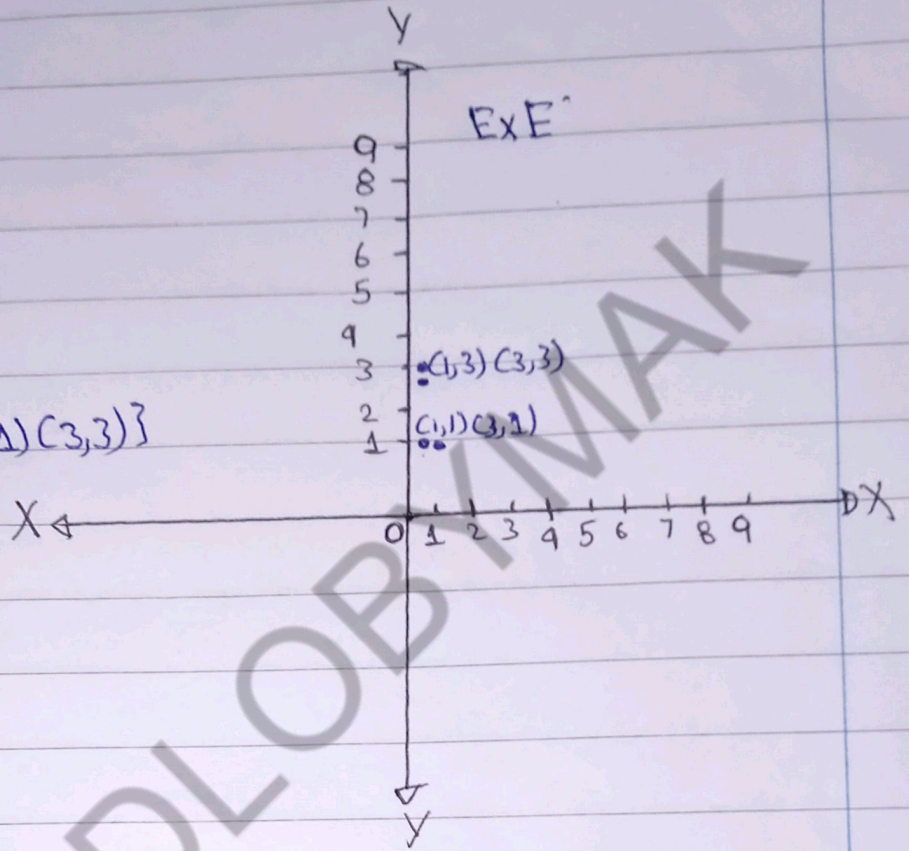 Y
ExE
9
8
7
6
5
4
3 (1,3) (3,3)
2 (1,1) (3,1)
1
1) (3,3)}
X X
0 1 2 3 4 5 6 7 8 9
Y
DLOBYMAK